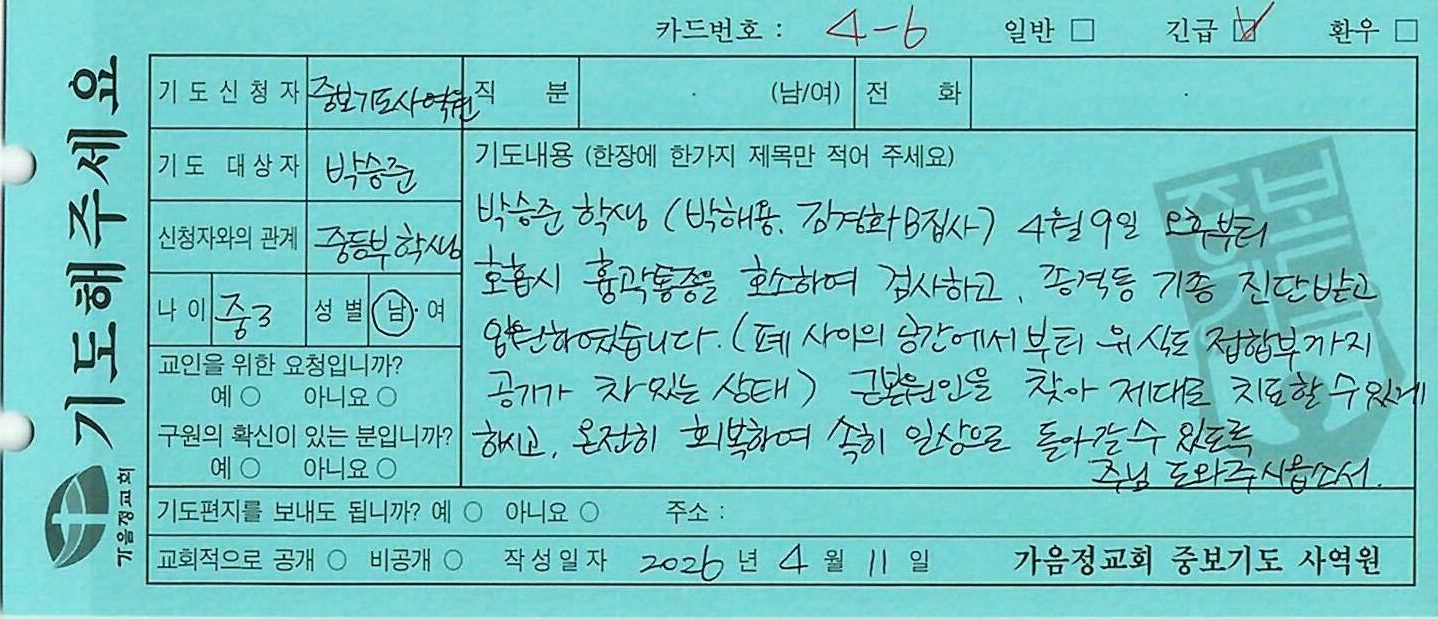 카드번호 : 4-6 일반 □ 긴급 ☑ 환우 □
기도해주세요
가음정교회
기도신청자 중보기도사역원 직 분 (남/여) 전 화
기도 대상자 박승준
신청자와의 관계 중등부학생
나이 중3 성별 남·여
교인을 위한 요청입니까?
예 ○ 아니요 ○
구원의 확신이 있는 분입니까?
예 ○ 아니요 ○
기도내용 (한장에 한가지 제목만 적어 주세요)
박승준 학생 (박해용, 강경화B집사) 4월 9일 오후부터
호흡시 흉곽통증을 호소하여 검사하고, 종격동 기종 진단받고
입원하였습니다. (폐 사이의 공간에서부터 위식도 접합부까지
공기가 차 있는 상태) 근본원인을 찾아 제대로 치료할 수 있게
하시고, 온전히 회복하여 속히 일상으로 돌아갈 수 있도록
주님 도와주시옵소서.
기도편지를 보내도 됩니까? 예 ○ 아니요 ○ 주소 :
교회적으로 공개 ○ 비공개 ○ 작성일자 2026 년 4 월 11 일 가음정교회 중보기도 사역원